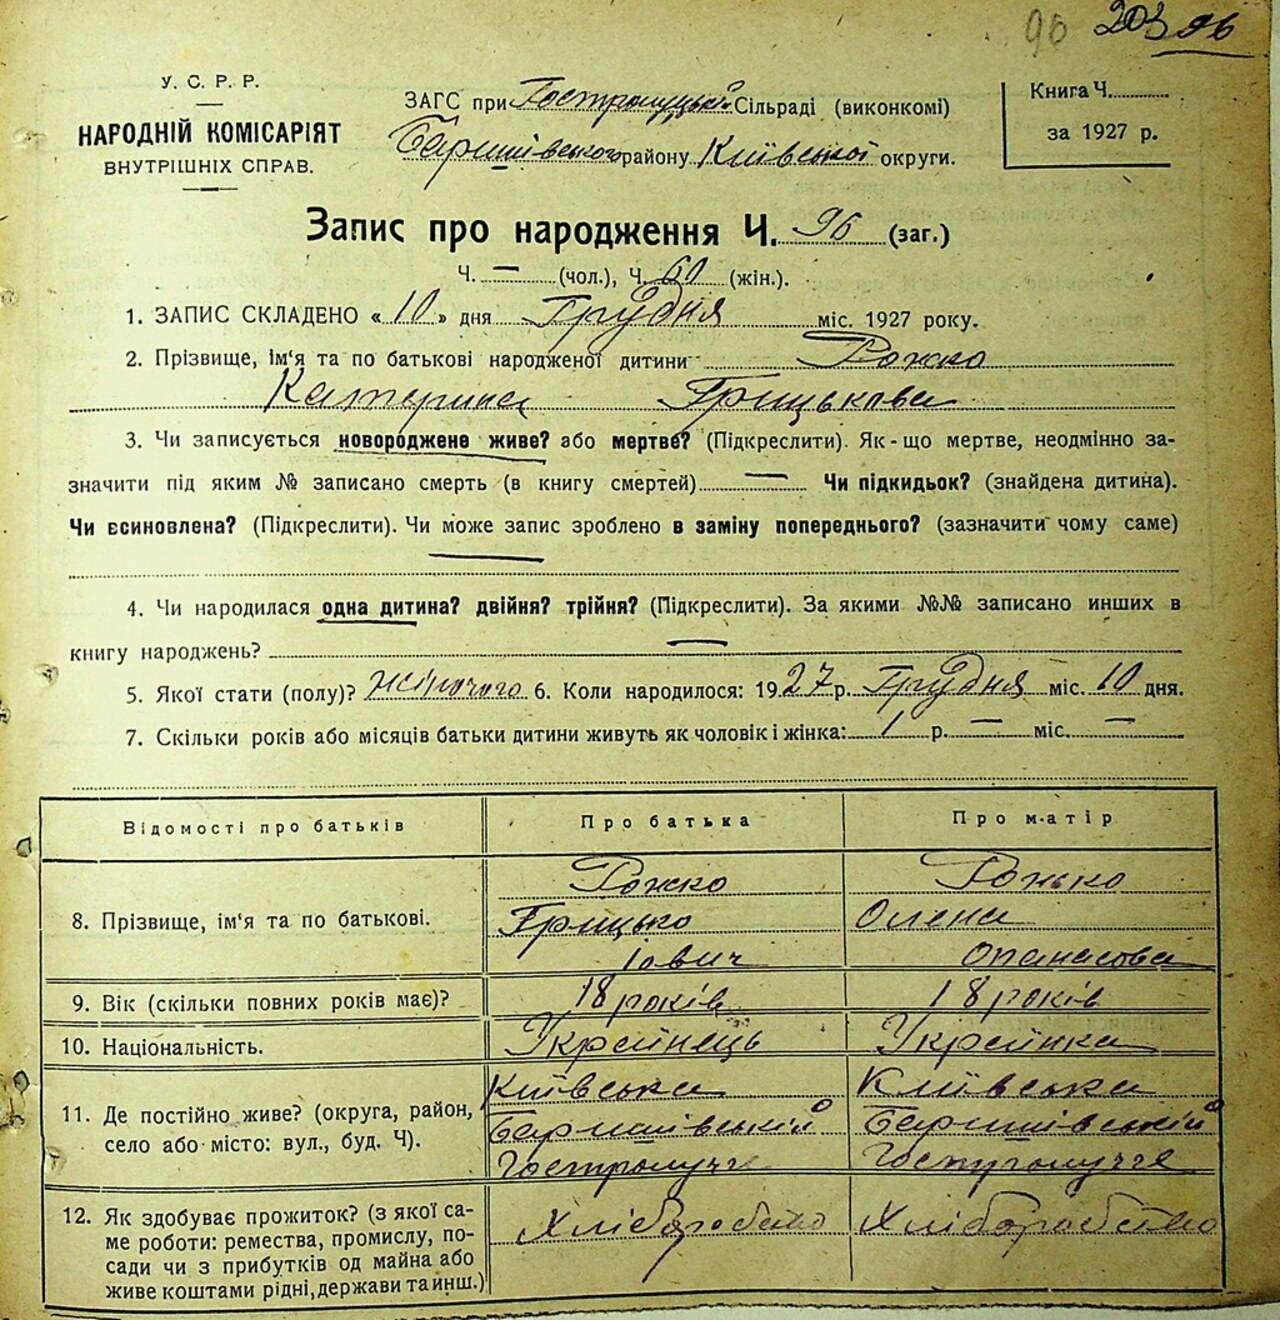 90 203 96
У. С. Р. Р.
НАРОДНІЙ КОМІСАРІЯТ
ВНУТРІШНІХ СПРАВ.
ЗАГС при Гостролуцькій Сільраді (виконкомі)
Баришівського району Київської округи.
Книга Ч.
за 1927 р.
Запис про народження Ч. 96 (заг.)
Ч. — (чол.), Ч. 60 (жін.).
1. ЗАПИС СКЛАДЕНО « 10 » дня Грудня міс. 1927 року.
2. Прізвище, ім'я та по батькові народженої дитини Рожко
Катерина Грицькова
3. Чи записується новороджене живе? або мертве? (Підкреслити). Як-що мертве, неодмінно за-
значити під яким № записано смерть (в книгу смертей) — Чи підкидьок? (знайдена дитина).
Чи всиновлена? (Підкреслити). Чи може запис зроблено в заміну попереднього? (зазначити чому саме)
—
4. Чи народилася одна дитина? двійня? трійня? (Підкреслити). За якими №№ записано инших в
книгу народжень? —
5. Якої стати (полу)? жіночого 6. Коли народилося: 1927 р. Грудня міс. 10 дня.
7. Скільки років або місяців батьки дитини живуть як чоловік і жінка: 1 р. — міс. —
Відомості про батьків Про батька Про матір
8. Прізвище, ім'я та по батькові.
Рожко
Грицько
Іович
Рожько
Олена
Опанасова
9. Вік (скільки повних років має)? 18 років 18 років
10. Національність. Украйнець Украйнка
11. Де постійно живе? (округа, район,
село або місто: вул., буд. Ч).
Київська
Баришівський
Гостролуччє
Київська
Баришівський
Гостролуччя
12. Як здобуває прожиток? (з якої са-
ме роботи: ремества, промислу, по-
сади чи з прибутків од майна або
живе коштами рідні, держави та инш.)
Хліборобство
Хліборобство